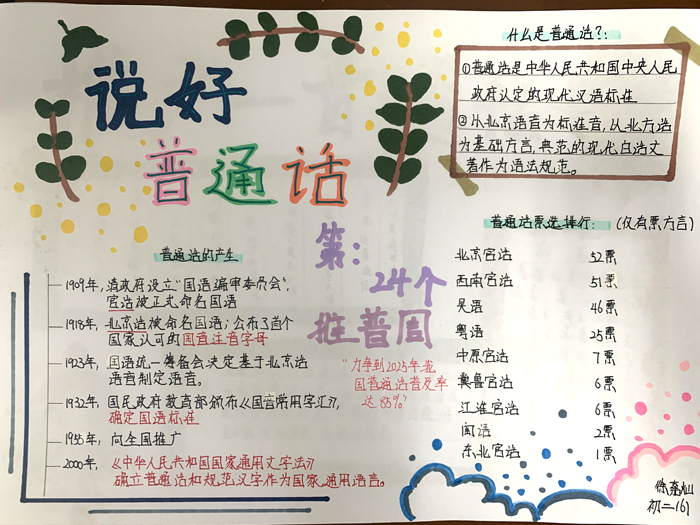 说好
普通话
第:
24个
推普周
什么是普通话?:
①普通话是中华人民共和国中央人民
政府认定的现代汉语标准
②以北京语音为标准音,以北方话
为基础方言,典范的现代白话文
著作为语法规范。
普通话的产生
1909年,清政府设立“国语编审委员会”,
官话被正式命名国语
1918年,北京话被命名国语;公布了首个
国家认可的国音注音字母
1923年,国语统一筹备会决定基于北京话
语音制定语音。
1932年,国民政府教育部颁布《国音常用字汇》,
确定国语标准
1955年,向全国推广
2000年,《中华人民共和国国家通用文字法》
确立普通话和规范汉字作为国家通用语言。
“力争到2025年我
国普通话普及率
达85%”
普通话票选排行: (仅有票方言)
北京官话 52票
西南官话 51票
吴语 46票
粤语 25票
中原官话 7票
冀鲁官话 6票
江淮官话 6票
闽语 2票
东北官话 1票
初二(6)